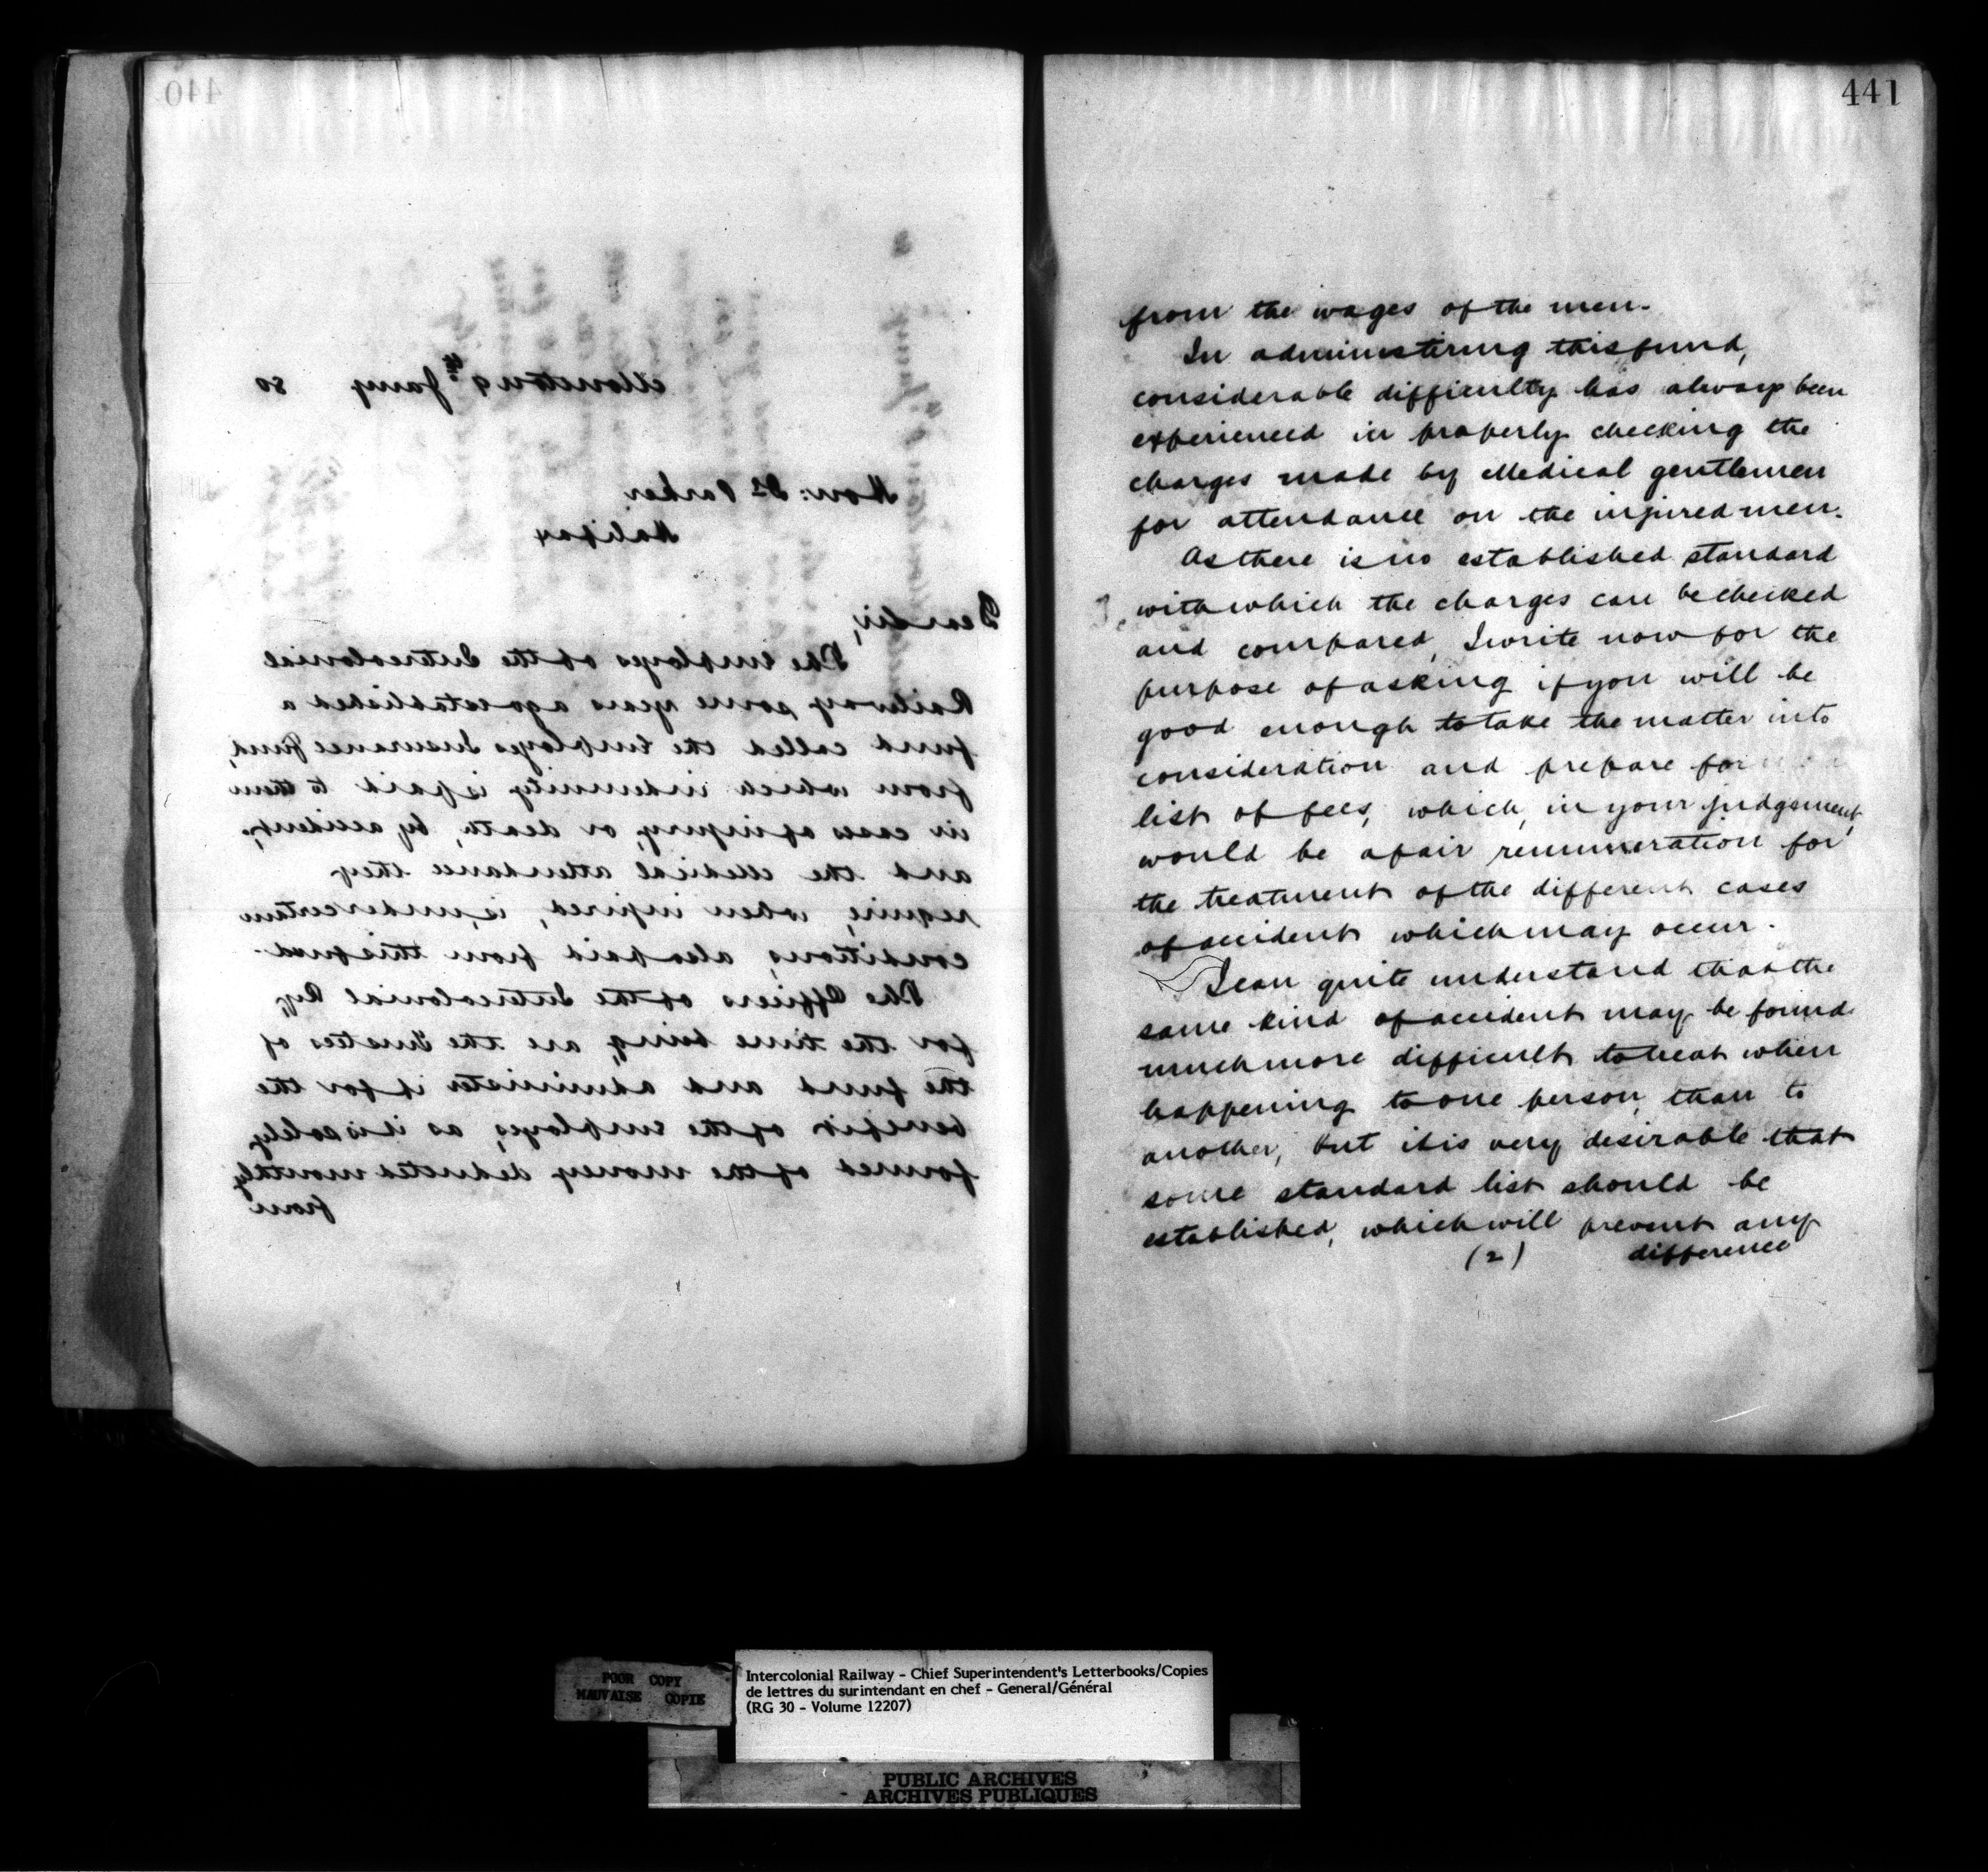 440
Moncton 9th Jany 80
Hon: Dr Parker,
Halifax
Dear Sir,
The Employes of the Intercolonial
Railway some years ago established a
fund called the Employes Insurance fund,
from which indemnity is paid to them
in cases of injury, or death, by accident,
and the Medical attendance they
require, when injured, is, under certain
conditions, also paid from this fund.
The Officers of the Intercolonial Ry,
for the time being, are the Trustees of
the fund and administer it for the
benefit of the employes, as it is solely
formed of the money deducted monthly
from
441
from the wages of the men.
In administering this fund,
considerable difficulty has always been
experienced in properly checking the
charges made by Medical gentlemen
for attendance on the injured men.
As there is no established standard
with which the charges can be checked
and compared, I write now for the
purpose of asking if you will be
good enough to take the matter into
consideration and prepare for
list of fees, which, in your judgement,
would be a fair remuneration for
the treatment of the different cases
of accident which may occur.
I can quite understand that the
same kind of accident may be found
much more difficult to treat when
happening to one person, than to
another, but it is very desirable that
some standard list should be
established, which will prevent any
(2) difference
POOR COPY
MAUVAISE COPIE
Intercolonial Railway - Chief Superintendent's Letterbooks/Copies
de lettres du surintendant en chef - General/Général
(RG 30 - Volume 12207)
PUBLIC ARCHIVES
ARCHIVES PUBLIQUES